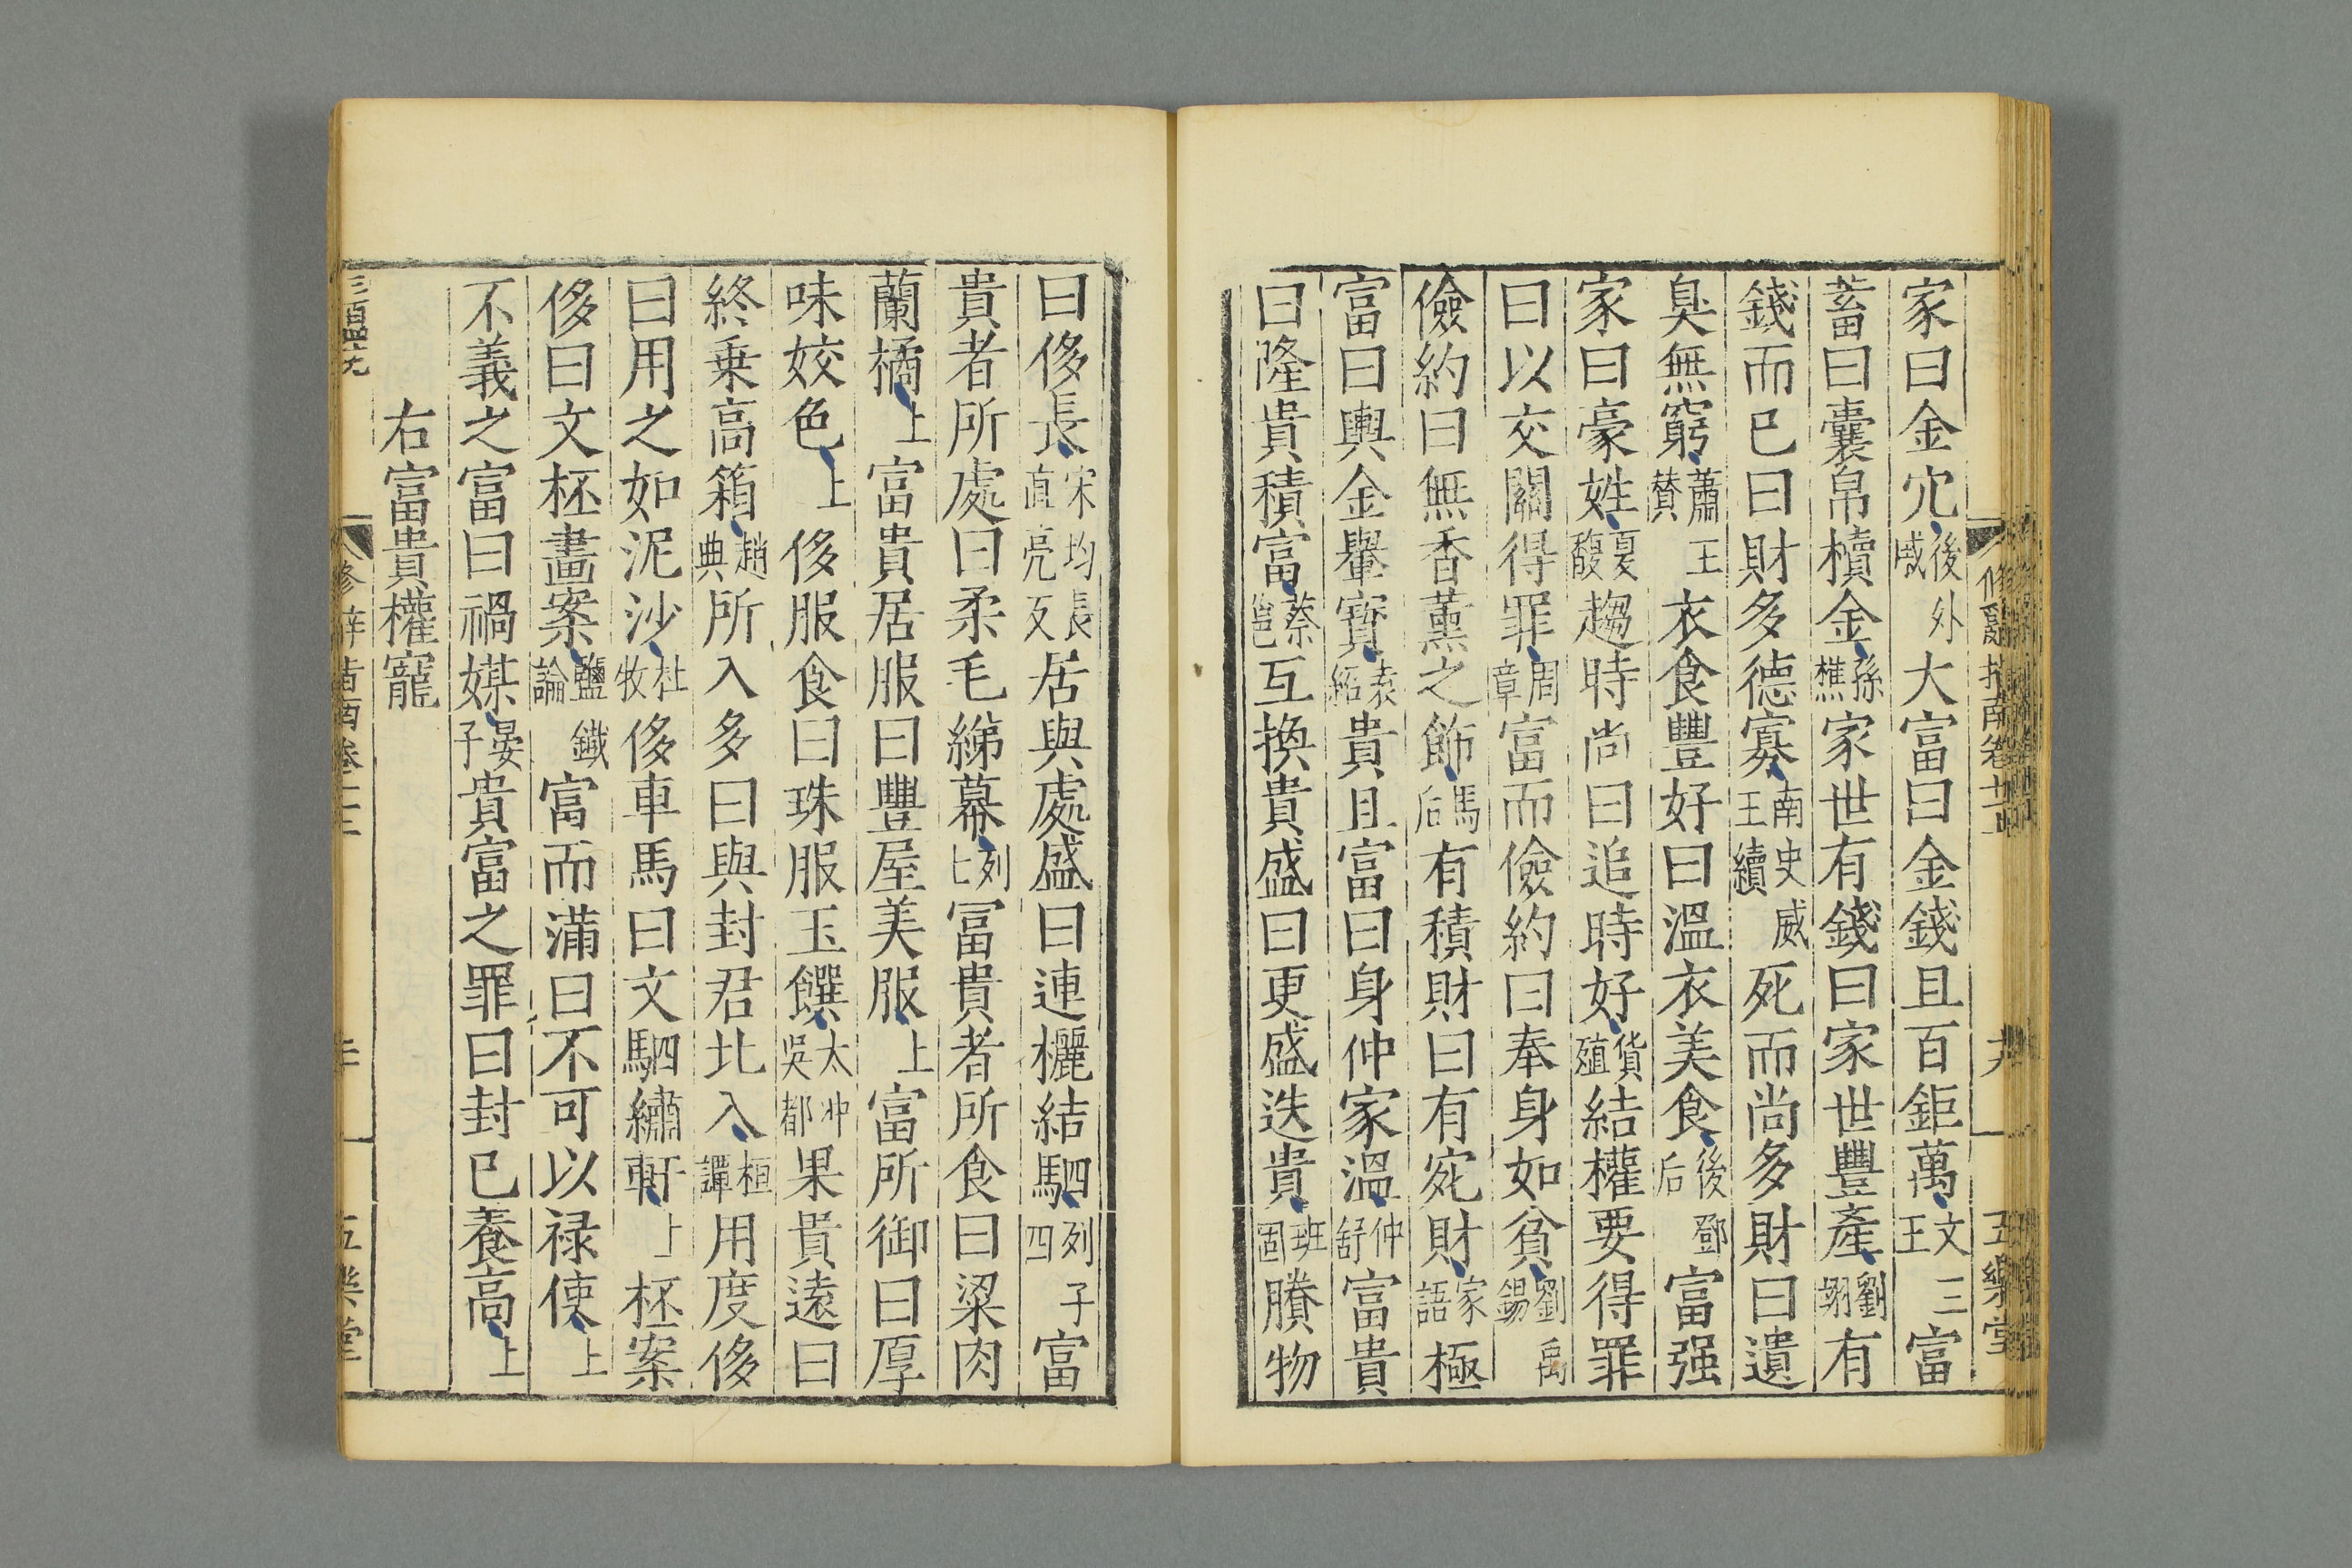 家曰金穴後外戚大富曰金錢且百鉅萬文三王富
蓄曰囊帛櫝金孫樵家世有錢曰家世豐產劉翊有
錢而已曰財多德寡南史威王續死而尚多財曰遺
臭無窮蕭王贊衣食豐好曰溫衣美食後鄧后富强
家曰豪姓夏馥趨時尚曰追時好貨殖結權要得罪
曰以交關得罪周章富而儉約曰奉身如貧劉禹錫
儉約曰無香薰之飾馬后有積財曰有宛財家語極
富曰輿金輦寳袁紹貴且富曰身仲家溫仲舒富貴
曰隆貴積富蔡邕互換貴盛曰更盛迭貴班固賸物
曰侈長宋均長直亮反居與處盛曰連欐結駟列子四富
貴者所處曰柔毛綈幕列七冨貴者所食曰粱肉
蘭橘上富貴居服曰豐屋美服上富所御曰厚
味姣色上侈服食曰珠服玉饌太冲吳都果貴遠曰
終乗高箱趙典所入多曰與封君比入桓譚用度侈
曰用之如泥沙杜牧侈車馬曰文駟繡軒上柸案
侈曰文柸畫案鹽鐵論富而滿曰不可以禄使上
不義之富曰禍媒晏子貴富之罪曰封已養高上
右富貴權寵